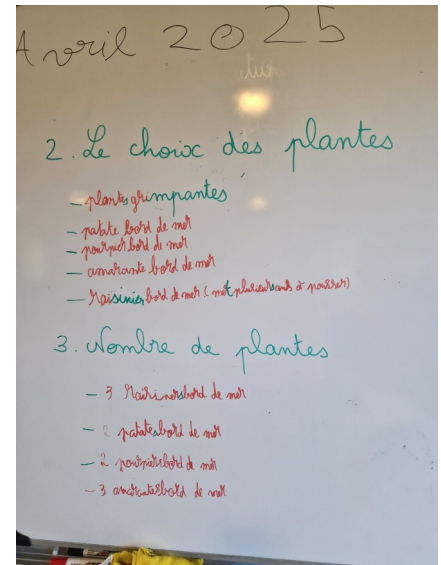 Avril 2025
2. Le choix des plantes
- plantes grimpantes
- patate bord de mer
- pourpier bord de mer
- amarante bord de mer
- Raisinier bord de mer ( met plusieurs ans à pousser)
3. Nombre de plantes
- 3 Raisiniers bord de mer
- 2 patates bord de mer
- 2 pourpiers bord de mer
- 3 amarantes bord de mer